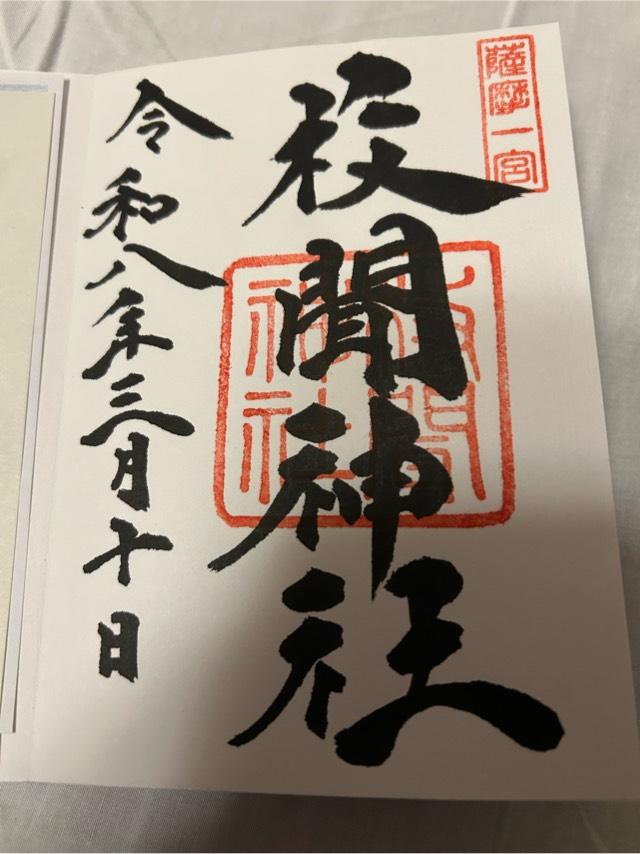 薩摩一宮
枚聞神社
枚聞
神社
令和八年三月十日